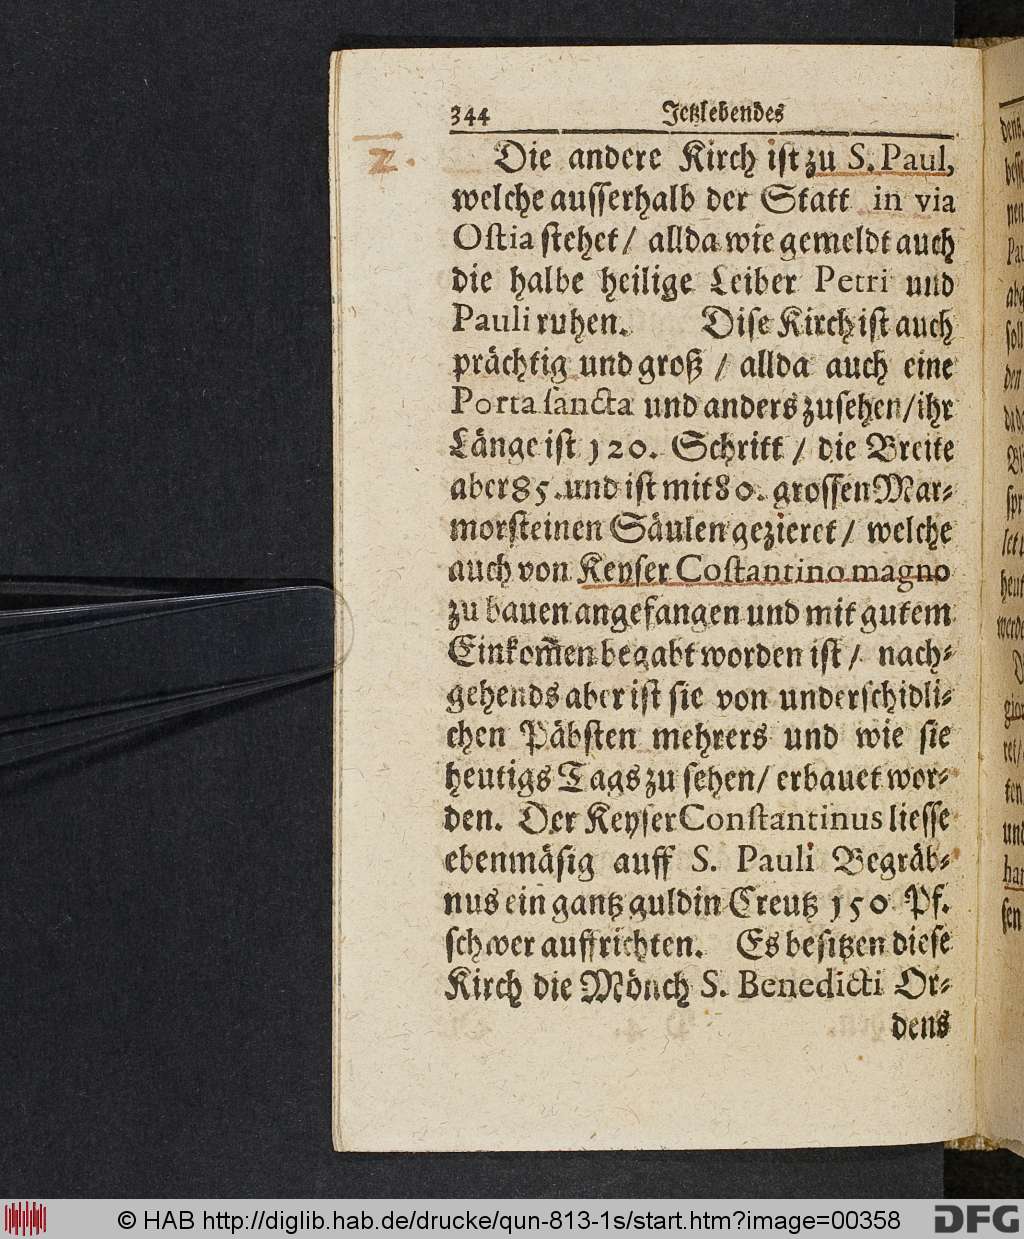 344 Jetzlebendes
2.
Die andere Kirch ist zu S. Paul,
welche ausserhalb der Statt in via
Ostia stehet / allda wie gemeldt auch
die halbe heilige Leiber Petri und
Pauli ruhen. Dise Kirch ist auch
prächtig und groß / allda auch eine
Porta sancta und anders zusehen / ihr
Länge ist 120. Schritt / die Breite
aber 85. und ist mit 80. grossen Mar-
morsteinen Säulen gezieret / welche
auch von Keyser Costantino magno
zu bauen angefangen und mit gutem
Einkom̃en begabt worden ist / nach-
gehends aber ist sie von underschidli-
chen Päbsten mehrers und wie sie
heutigs Tags zu sehen / erbauet wor-
den. Der Keyser Constantinus liesse
ebenmäsig auff S. Pauli Begräb-
nus ein gantz guldin Creutz 150 Pf.
schwer auffrichten. Es besitzen diese
Kirch die Mönch S. Benedicti Or-
dens
© HAB http://diglib.hab.de/drucke/qun-813-1s/start.htm?image=00358
DFG